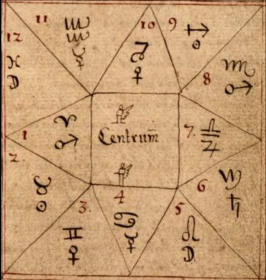 12 ♓ ☽
11 ♒ ☿
10 ♑ ♀
9 ♐ ☉
8 ♏ ♂
Centrum
1 ♈ ♂
7. ♎ ♃
2 ♉ ☉
3. ♊ ♀
4 ♋ ☿
5 ♌ ☽
6 ♍ ♄